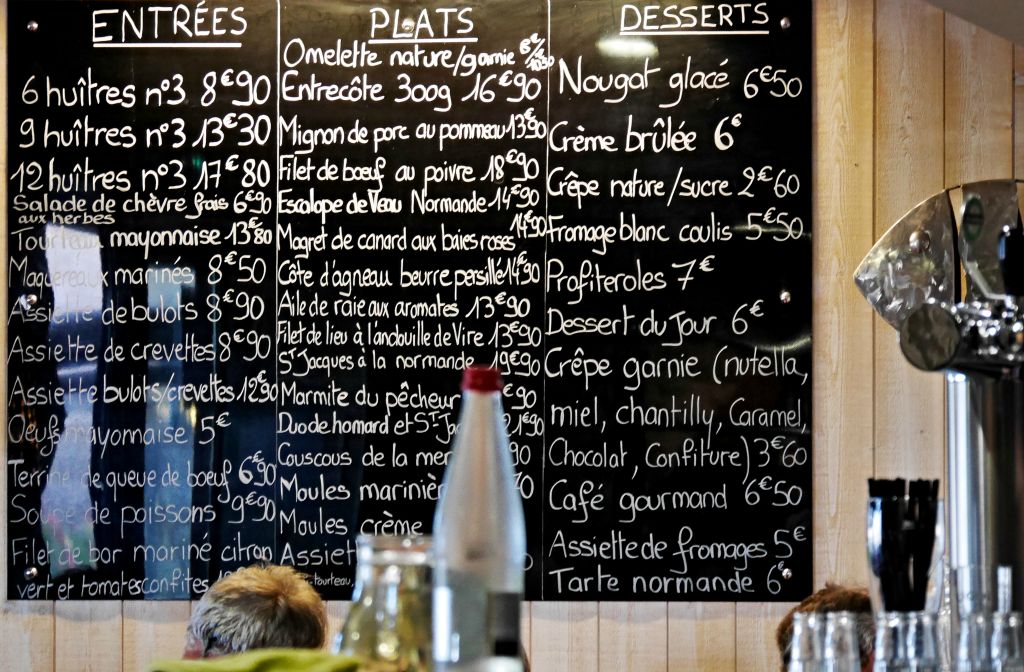 ENTRÉES
6 huîtres n°3 8€90
9 huîtres n°3 13€30
12 huîtres n°3 17€80
Salade de chèvre frais 6€90
aux herbes
Tourteau mayonnaise 13€80
Maquereaux marinés 8€50
Assiette de bulots 8€90
Assiette de crevettes 8€90
Assiette bulots/crevettes 12€90
Oeufs mayonnaise 5€
Terrine de queue de boeuf 6€90
Soupe de poissons 9€90
Filet de bar mariné citron
vert et tomates confites
PLATS
Omelette nature/garnie
Entrecôte 300g 16€90
Mignon de porc au pommeau 13€90
Filet de boeuf au poivre 18€90
Escalope de Veau Normande 14€90
14€90
Magret de canard aux baies roses
Côte d'agneau beurre persillé 14€90
Aile de raie aux aromates 13€90
Filet de lieu à l'andouille de Vire 13€90
St Jacques à la normande 19€90
Marmite du pêcheur €90
Duo de homard et St Jac 21€90
Couscous de la mer 90
Moules marinièr
Moules crème
Assiet
tourteau,
DESSERTS
Nougat glacé 6€50
Crème brûlée 6€
Crêpe nature/sucre 2€60
Fromage blanc coulis 5€50
Profiteroles 7€
Dessert du Jour 6€
Crêpe garnie (nutella,
miel, chantilly, Caramel,
Chocolat, Confiture) 3€60
Café gourmand 6€50
Assiette de fromages 5€
Tarte normande 6€